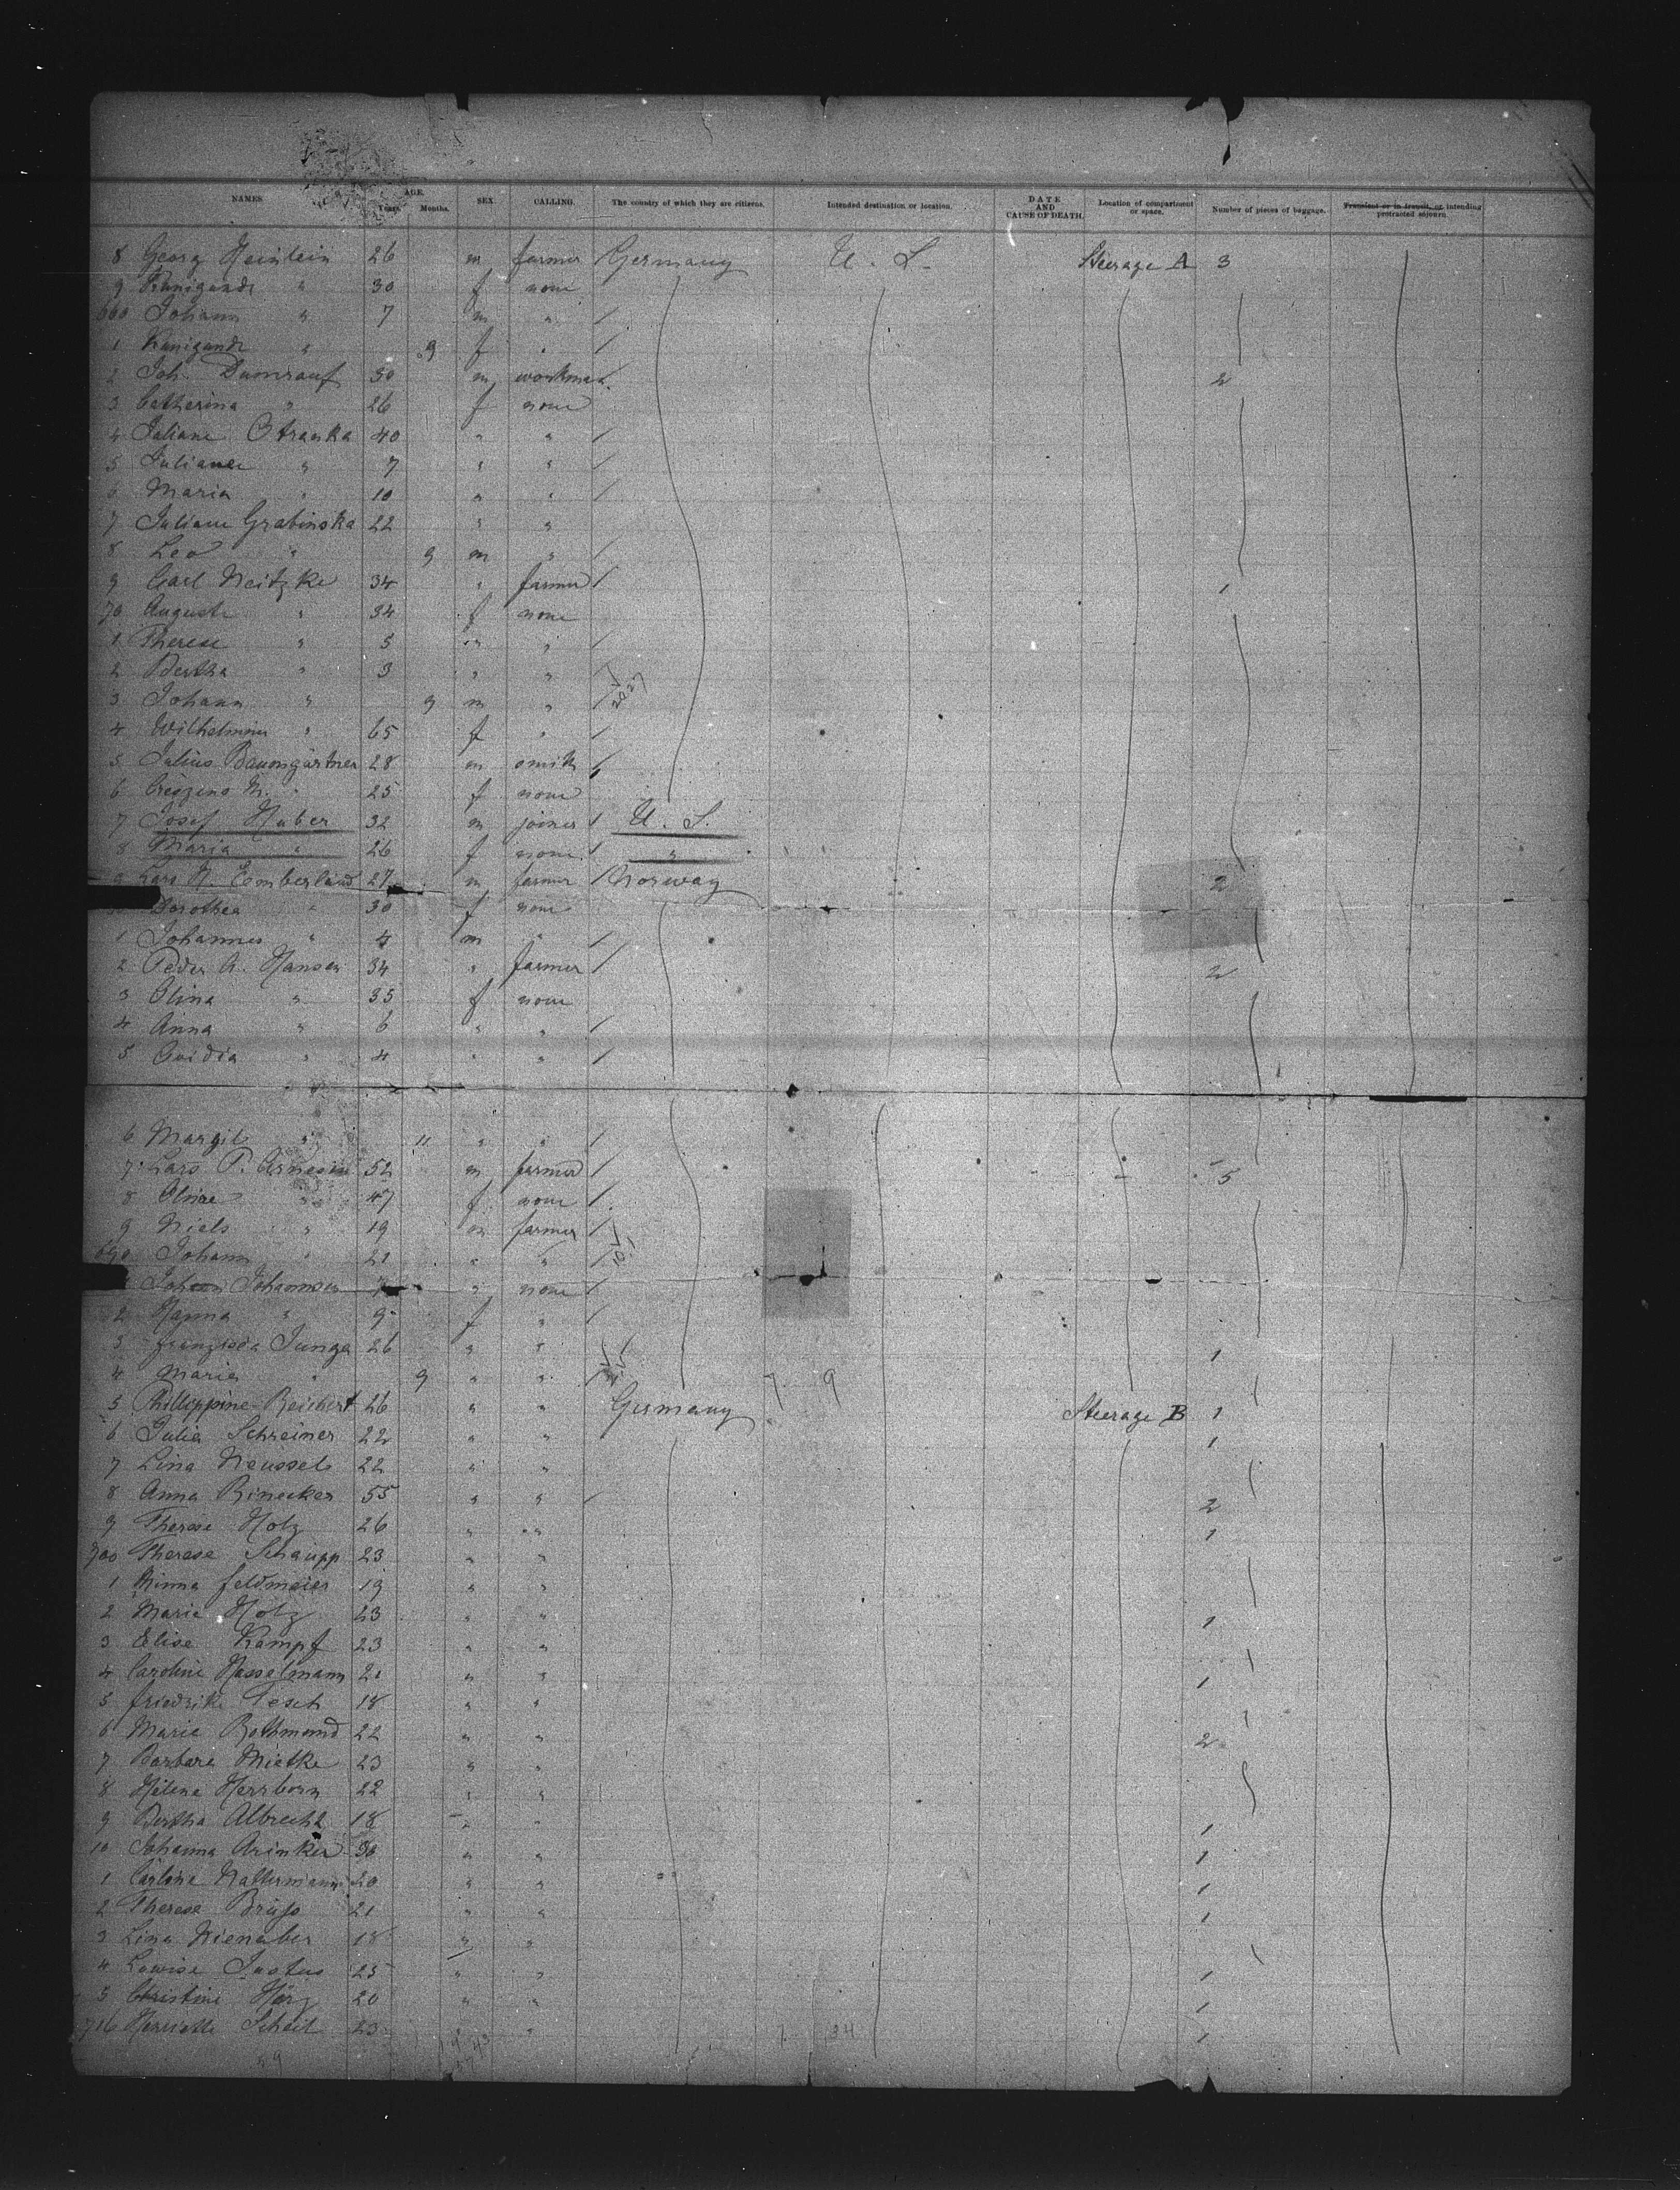 NAMES. AGE. Years. Months. SEX. CALLING. The country of which they are citizens. Intended destination or location. DATE AND CAUSE OF DEATH. Location of compartment or space. Number of pieces of baggage. Transient or in transit, or intending protracted sojourn.
8 Georg Heinlein 26 m farmer Germany U. S. Steerage A 3
9 Kunigunde " 30 f none
660 Johann " 7 m "
1 Kunigunde " 9 f "
2 Joh. Dumrauf 30 m workman 2
3 Catharina " 26 f none
4 Juliane Otraska 40 " "
5 Juliane " 7 " "
6 Maria " 10 " "
7 Juliane Grabinska 22 " "
8 Leo " 9 m "
9 Carl Neitzke 34 " farmer 1
70 Auguste " 34 f none
1 Therese " 5 " "
2 Bertha " 3 " "
3 Johann " 9 m "
4 Wilhelmine " 65 f "
5 Julius Baumgärtner 28 m smith
6 Creszens M. " 25 f none
7 Josef Huber 32 m joiner U. S.
8 Maria " 26 f none "
9 Lars N. 27 m farmer Norway 2
Dorothea " 30 f none
1 Johannes " 4 m "
2 Peder A. Hansen 34 " farmer 2
3 Olina " 35 f none
4 Anna " 6 " "
5 " 4 " "
6 Margit " 11 " "
7 Lars P. Arnesen 52 m farmer 5
8 Oline " 47 f none
9 Niels " 19 m farmer
690 Johann " 21 " "
Johann Johannsen " none
2 Hanna " 9 f "
3 Franziska Junga 26 " " 1
4 Maria " 9 " "
5 Phillippine Reichert 26 " " Germany Steerage B 1
6 Julia Schreiner 22 " " 1
7 Lina Neussel 22 " "
8 Anna Binecker 55 " " 2
9 Therese Holz 26 " " 1
700 Therese Schaupp 23 " "
1 Minna Feldmeier 19 " "
2 Maria Holz 23 " " 1
3 Elise Kampf 23 " "
4 Caroline Hasselmann 21 " " 1
5 Friedrike Tesch 18 " "
6 Maria Rothmund 22 " " 2
7 Barbara Mietke 23 " "
8 Helene Herrborn 22 " "
9 Bertha Albrecht 18 " " 1
10 Johanna Arinker 30 " " 1
1 Nattermann 20 " " 1
2 Therese 21 " " 1
3 Lina Nienaber 18 " "
4 Louise Justus 25 " " 1
5 Christine Herz 20 " " 1
716 Henriette Scheit 23 " 1